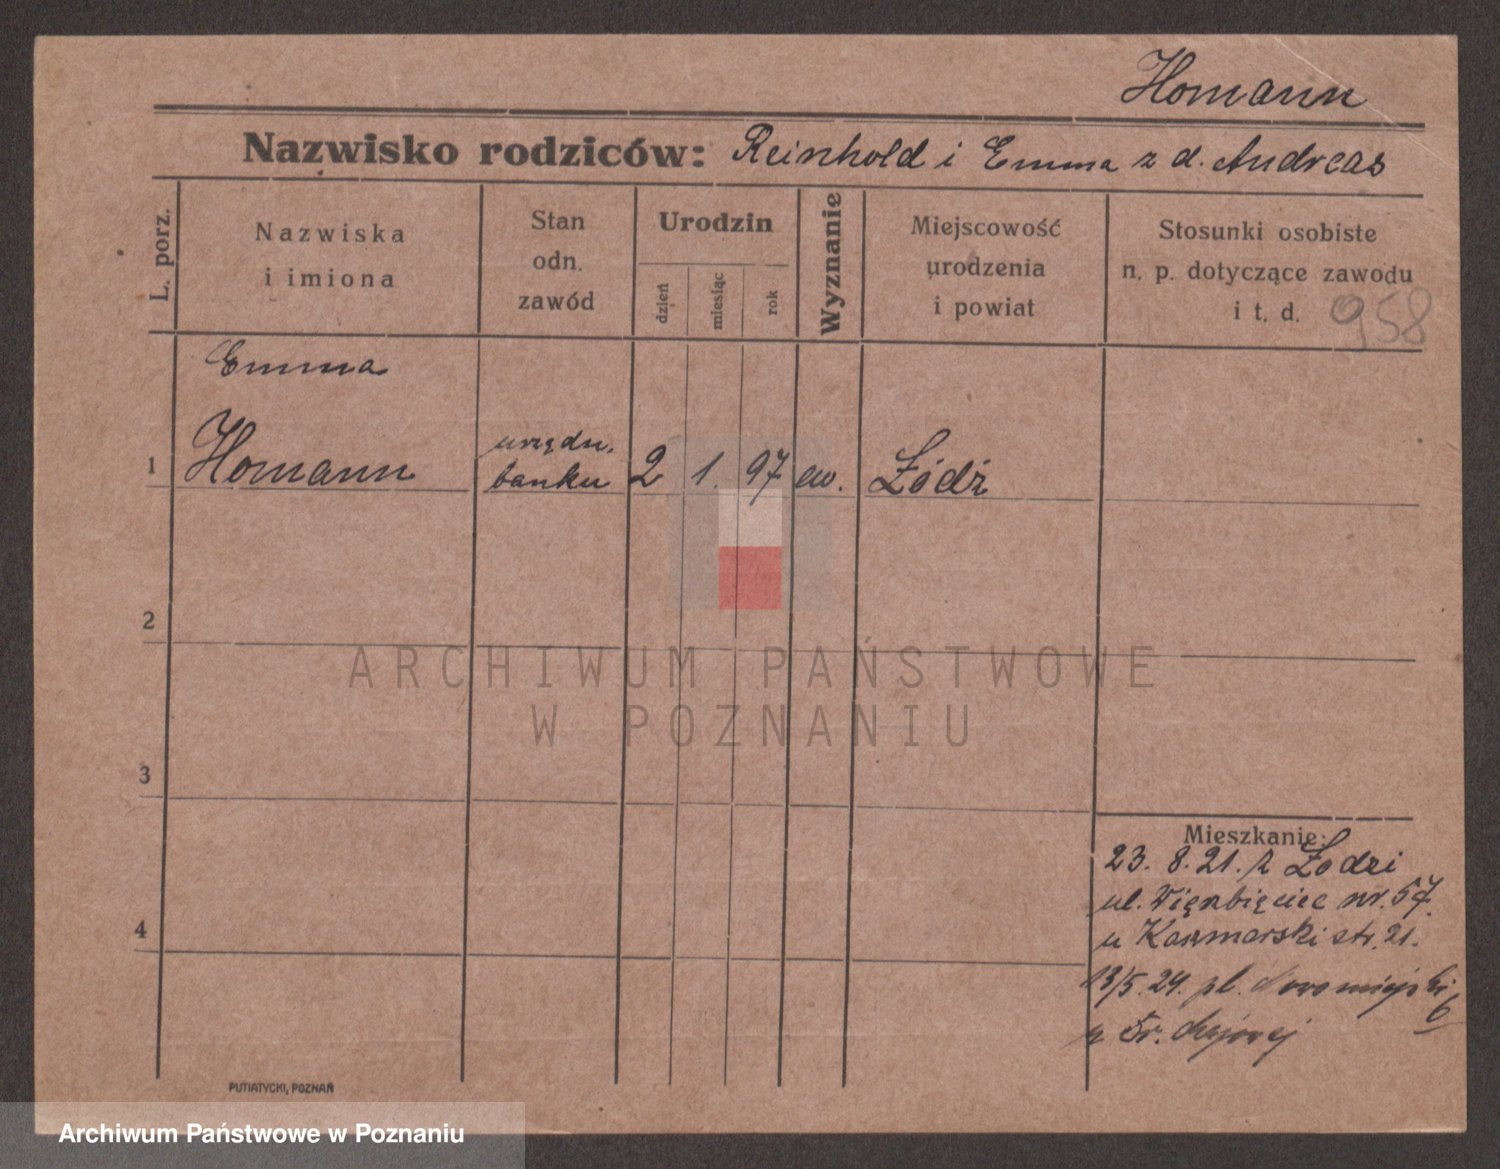 Homann
Nazwisko rodziców: Reinhold i Emma z d. Andreas
L. porz.
Nazwiska
i imiona
Stan
odn.
zawód
Urodzin
dzień
miesiąc
rok
Wyznanie
Miejscowość
urodzenia
i powiat
Stosunki osobiste
n. p. dotyczące zawodu
i t. d. 958
Emma
1 Homann urzędn. banku 2 1. 97 ew. Łódź
2
3
4
Mieszkanie:
23. 8. 21. z Łodzi
ul. Wierzbięcice nr. 57.
u Kaczmarski str. 21.
13/5. 24. pl. Nowomiejski 6
u Fr.
PUTIATYCKI, POZNAŃ
ARCHIWUM PAŃSTWOWE
W POZNANIU
Archiwum Państwowe w Poznaniu